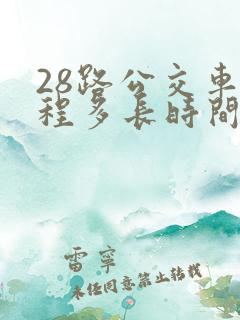 28路公交車
程多長時間
雷寧
未经同意禁止转载